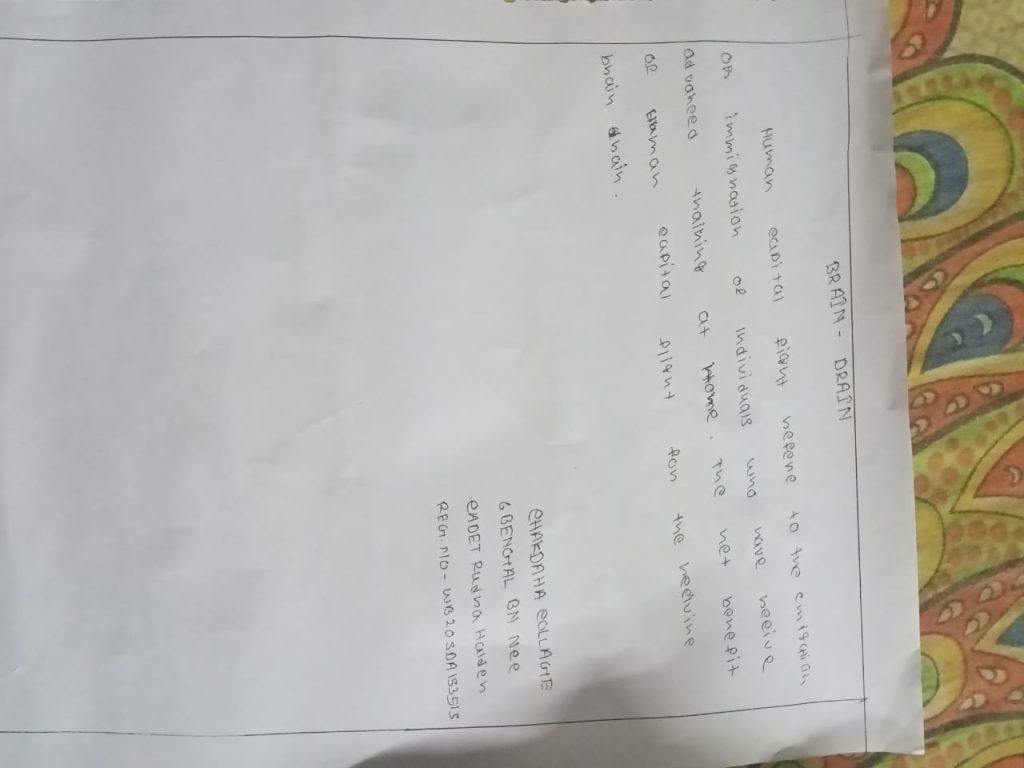 BRAIN - DRAIN
Human capital flight refere to the emigration
or immigration of individuals who have receive
advanced training at home. The net benefit
of Human capital flight for the receive
brain drain.
CHAKDAHA COLLAGE
6 BENGAL BN NCC
CADET Rudra Halder
REG. NO - WB20SDA153515